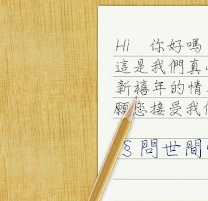 Hi 你好嗎
這是我們真心
新禧年的情
願您接受我們
§問世間